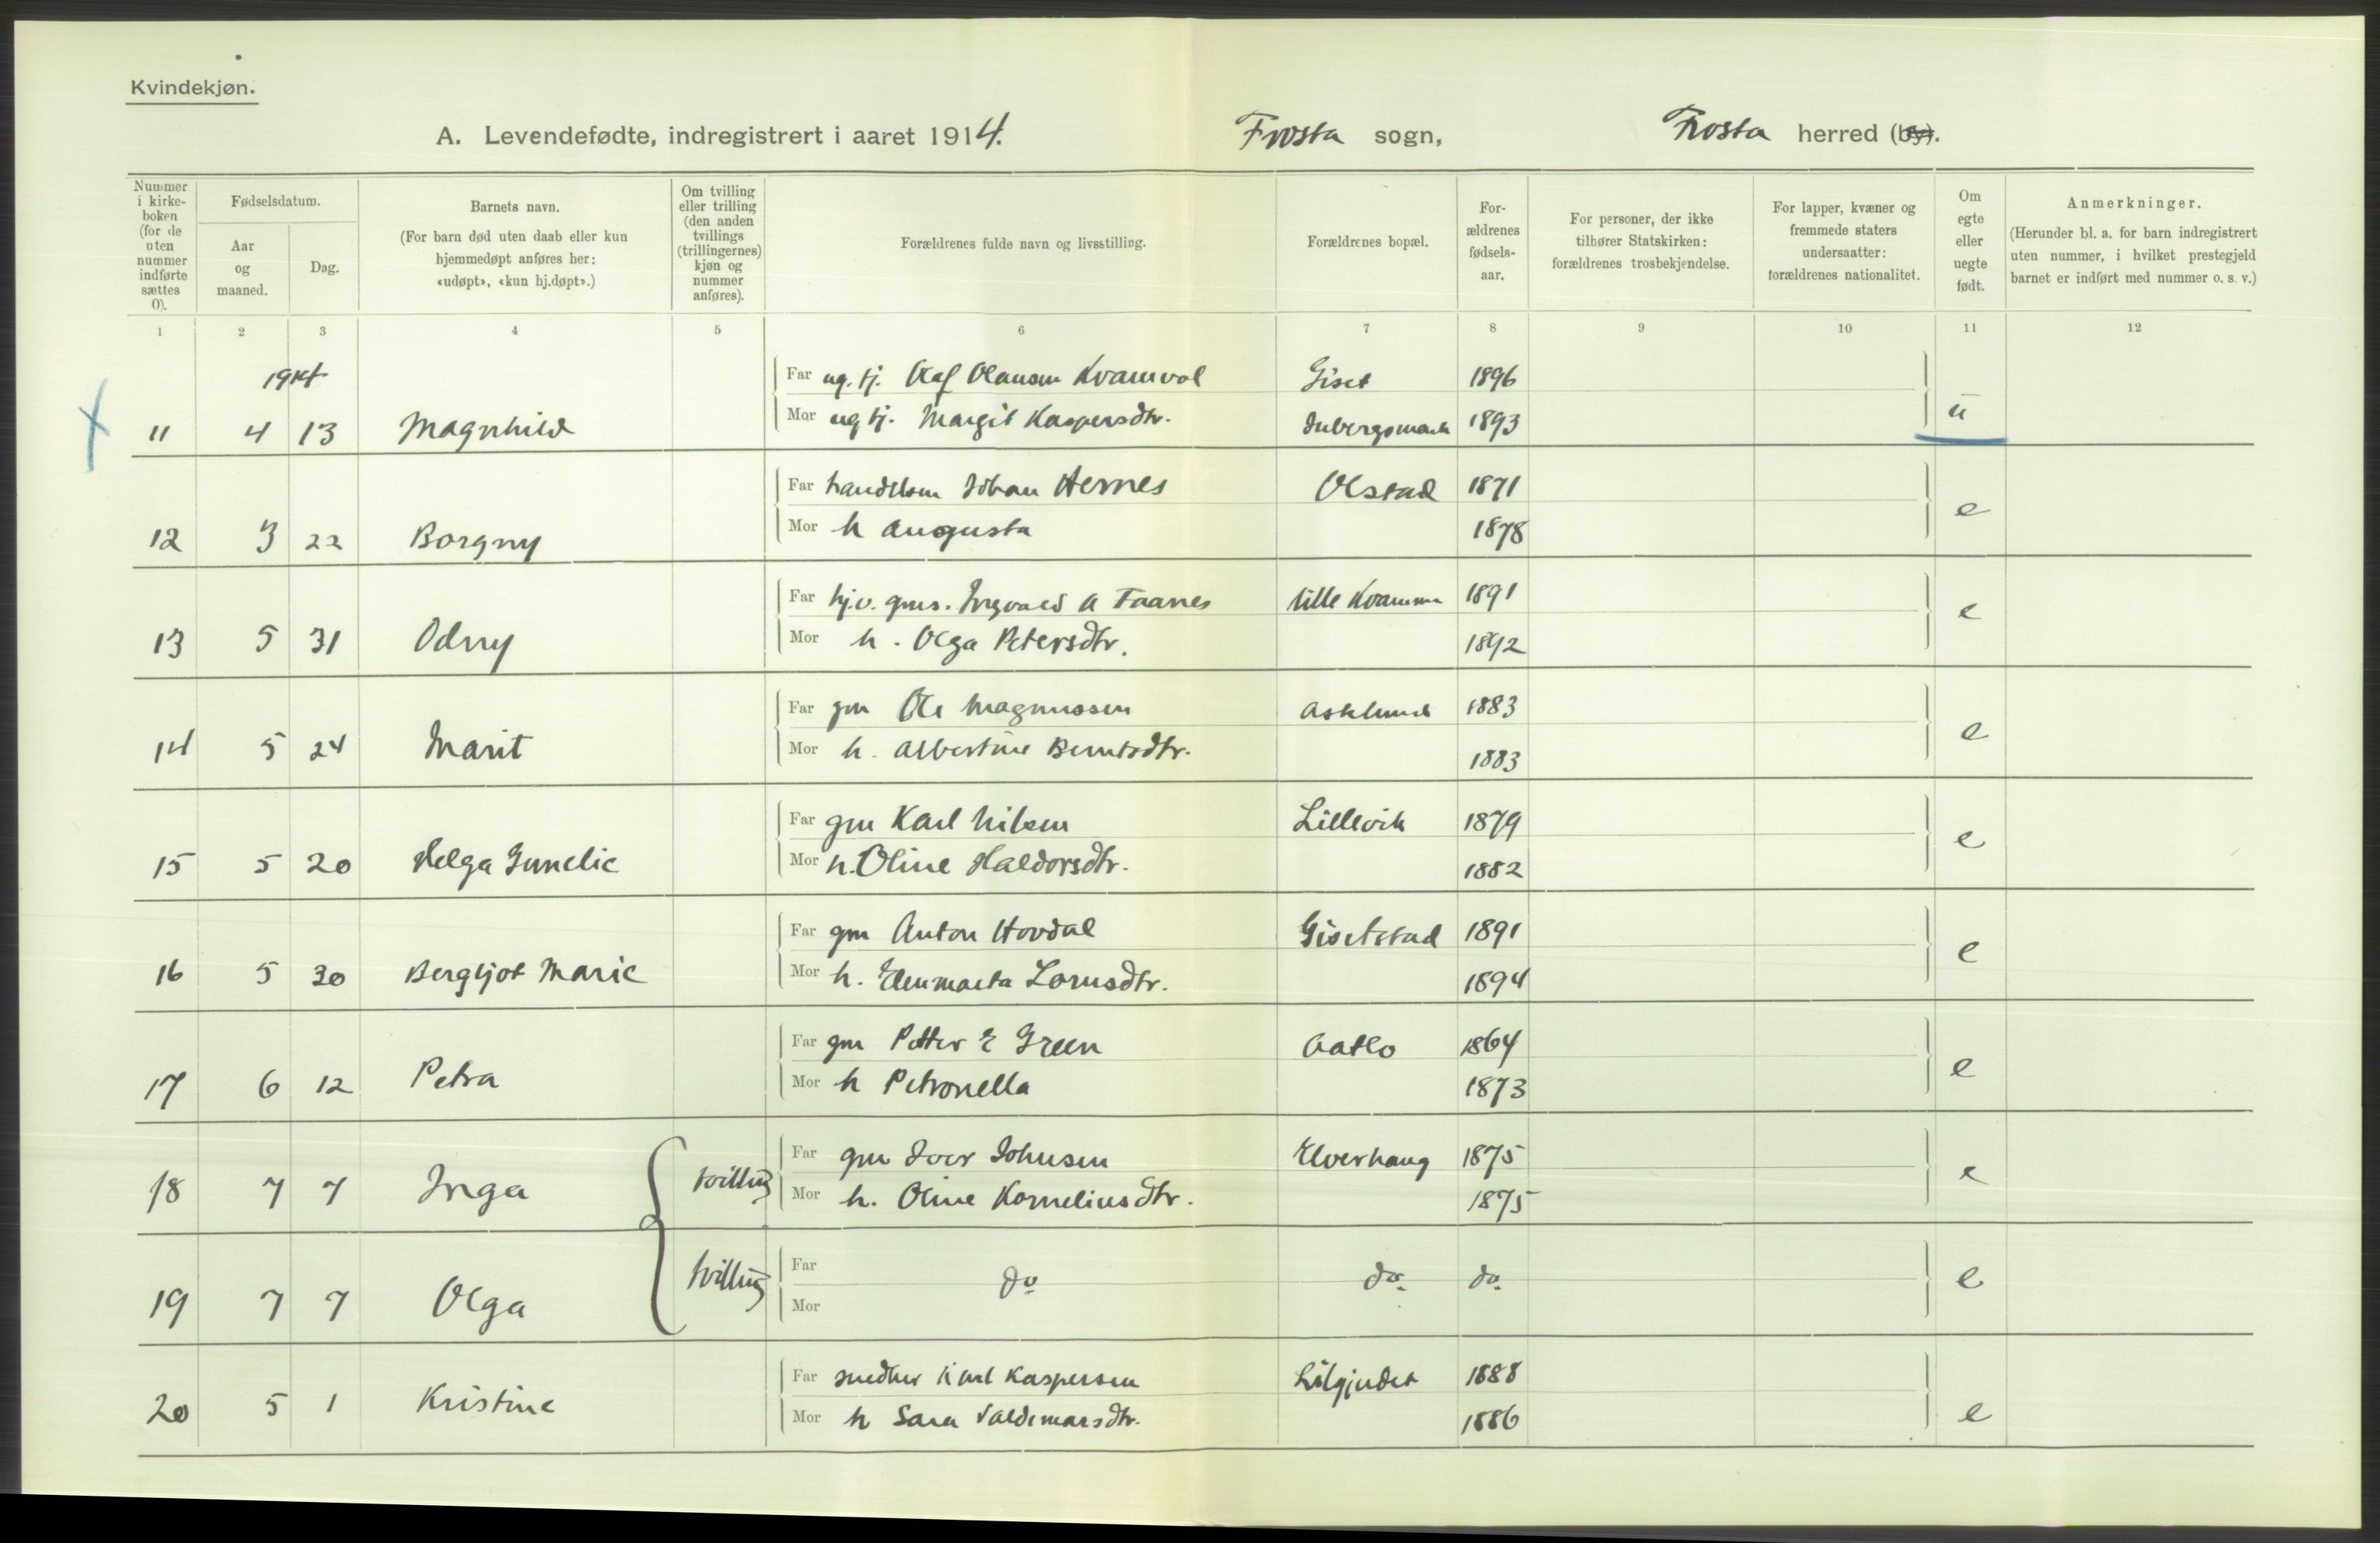 Kvindekjøn.
A. Levendefødte, indregistrert i aaret 1914. Frosta sogn, Frosta herred (by).
Nummer i kirke-boken (for de uten nummer indførte sættes 0).
Fødselsdatum.
Aar og maaned.
Dag.
Barnets navn.
(For barn død uten daab eller kun hjemmedøpt anføres her: «udøpt», «kun hj.døpt».)
Om tvilling eller trilling (den anden tvillings (trillingernes) kjøn og nummer anføres).
Forældrenes fulde navn og livsstilling.
Forældrenes bopæl.
For-ældrenes fødsels-aar.
For personer, der ikke tilhører Statskirken: forældrenes trosbekjendelse.
For lapper, kvæner og fremmede staters undersaatter: forældrenes nationalitet.
Om egte eller uegte født.
Anmerkninger.
(Herunder bl. a. for barn indregistrert uten nummer, i hvilket prestegjeld barnet er indført med nummer o. s. v.)
1 2 3 4 5 6 7 8 9 10 11 12
1914
Far ug. tj. Olaf Olausen Kvamvol Giset 1896
11 4 13 Magnhild Mor ug tj. Margit Kaspersdtr. 1893 u
Far handelsm Johan Hernes Olstad 1871
12 3 22 Borgny Mor h Augusta 1878 e
Far hj.v. gms. Ingvald A Faanes lille Kvamme 1891
13 5 31 Odny Mor h. Olga Petersdtr. 1892 e
Far gm Ole Magnussen Asklund 1883
14 5 24 Marit Mor h. Albertine Berntsdtr. 1883 e
Far gm Karl Nilsen Lillevik 1879
15 5 20 Helga Gunelie Mor h. Oline Haldorsdtr. 1882 e
Far gm Anton Hovdal Gisetstad 1891
16 5 30 Bergljot Marie Mor h. Elenmarta Lornsdtr. 1894 e
Far gm Petter E Green Aatlo 1864
17 6 12 Petra Mor h Petronella 1873 e
Far gm Iver Johnsen Elverhaug 1875
18 7 7 Inga tvilling Mor h. Oline Korneliusdtr. 1875 e
19 7 7 Olga tvilling Far Mor do do. do. e
Far Karl Kaspersen 1888
20 5 1 Kristine Mor h Sara Valdemarsdtr. 1886 e